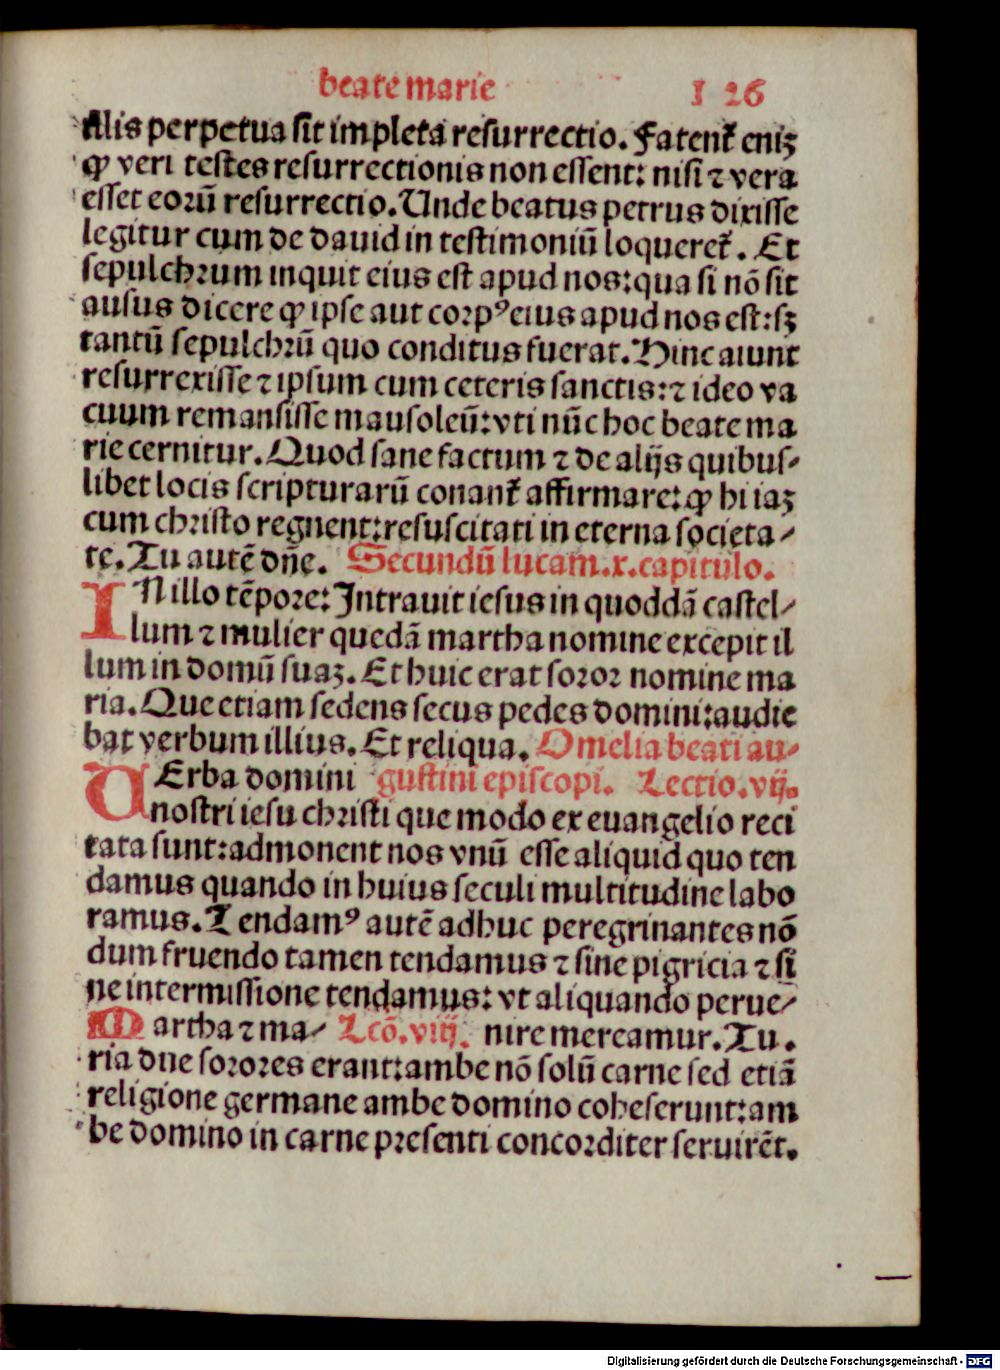 beate marie 126
illis perpetua sit impleta resurrectio. Fatent᷑ eniꝫ
ꝙ veri testes resurrectionis non essent: nisi ⁊ vera
esset eorū resurrectio. Unde beatus petrus dixisse
legitur cum de dauid in testimoniū loqueret᷑. Et
sepulchrum inquit eius est apud nos: qua si nō sit
ausus dicere ꝙ ipse aut corpꝰ eius apud nos est: sꝫ
tantū sepulchrū quo conditus fuerat. Hinc aiunt
resurrexisse ⁊ ipsum cum ceteris sanctis: ⁊ ideo va
cuum remansisse mausoleū: vti nūc hoc beate ma
rie cernitur. Quod sane factum ⁊ de alijs quibus⸗
libet locis scripturarū conant᷑ affirmare: ꝙ hi iaꝫ
cum christo regnent: resuscitati in eterna societa⸗
te. Tu autē dn̄e. Secundū lucam. x. capitulo.
IN illo tēpore: Intrauit iesus in quoddā castel⸗
lum ⁊ mulier quedā martha nomine excepit il
lum in domū suaꝫ. Et huic erat soror nomine ma
ria. Que etiam sedens secus pedes domini: audie
bat verbum illius. Et reliqua. Omelia beati au⸗
VErba domini gustini episcopi. Lectio. vij.
nostri iesu christi que modo ex euangelio reci
tata sunt: admonent nos vnū esse aliquid quo ten
damus quando in huius seculi multitudine labo
ramus. Tendamꝰ autē adhuc peregrinantes nō
dum fruendo tamen tendamus ⁊ sine pigricia ⁊ si
ne intermissione tendamus: vt aliquando perue⸗
Martha ⁊ ma⸗ Lcō. viij. nire mereamur. Tu.
ria due sorores erant: ambe nō solū carne sed etiā
religione germane ambe domino coheserunt: am
be domino in carne presenti concorditer seruirēt.
Digitalisierung gefördert durch die Deutsche Forschungsgemeinschaft - DFG